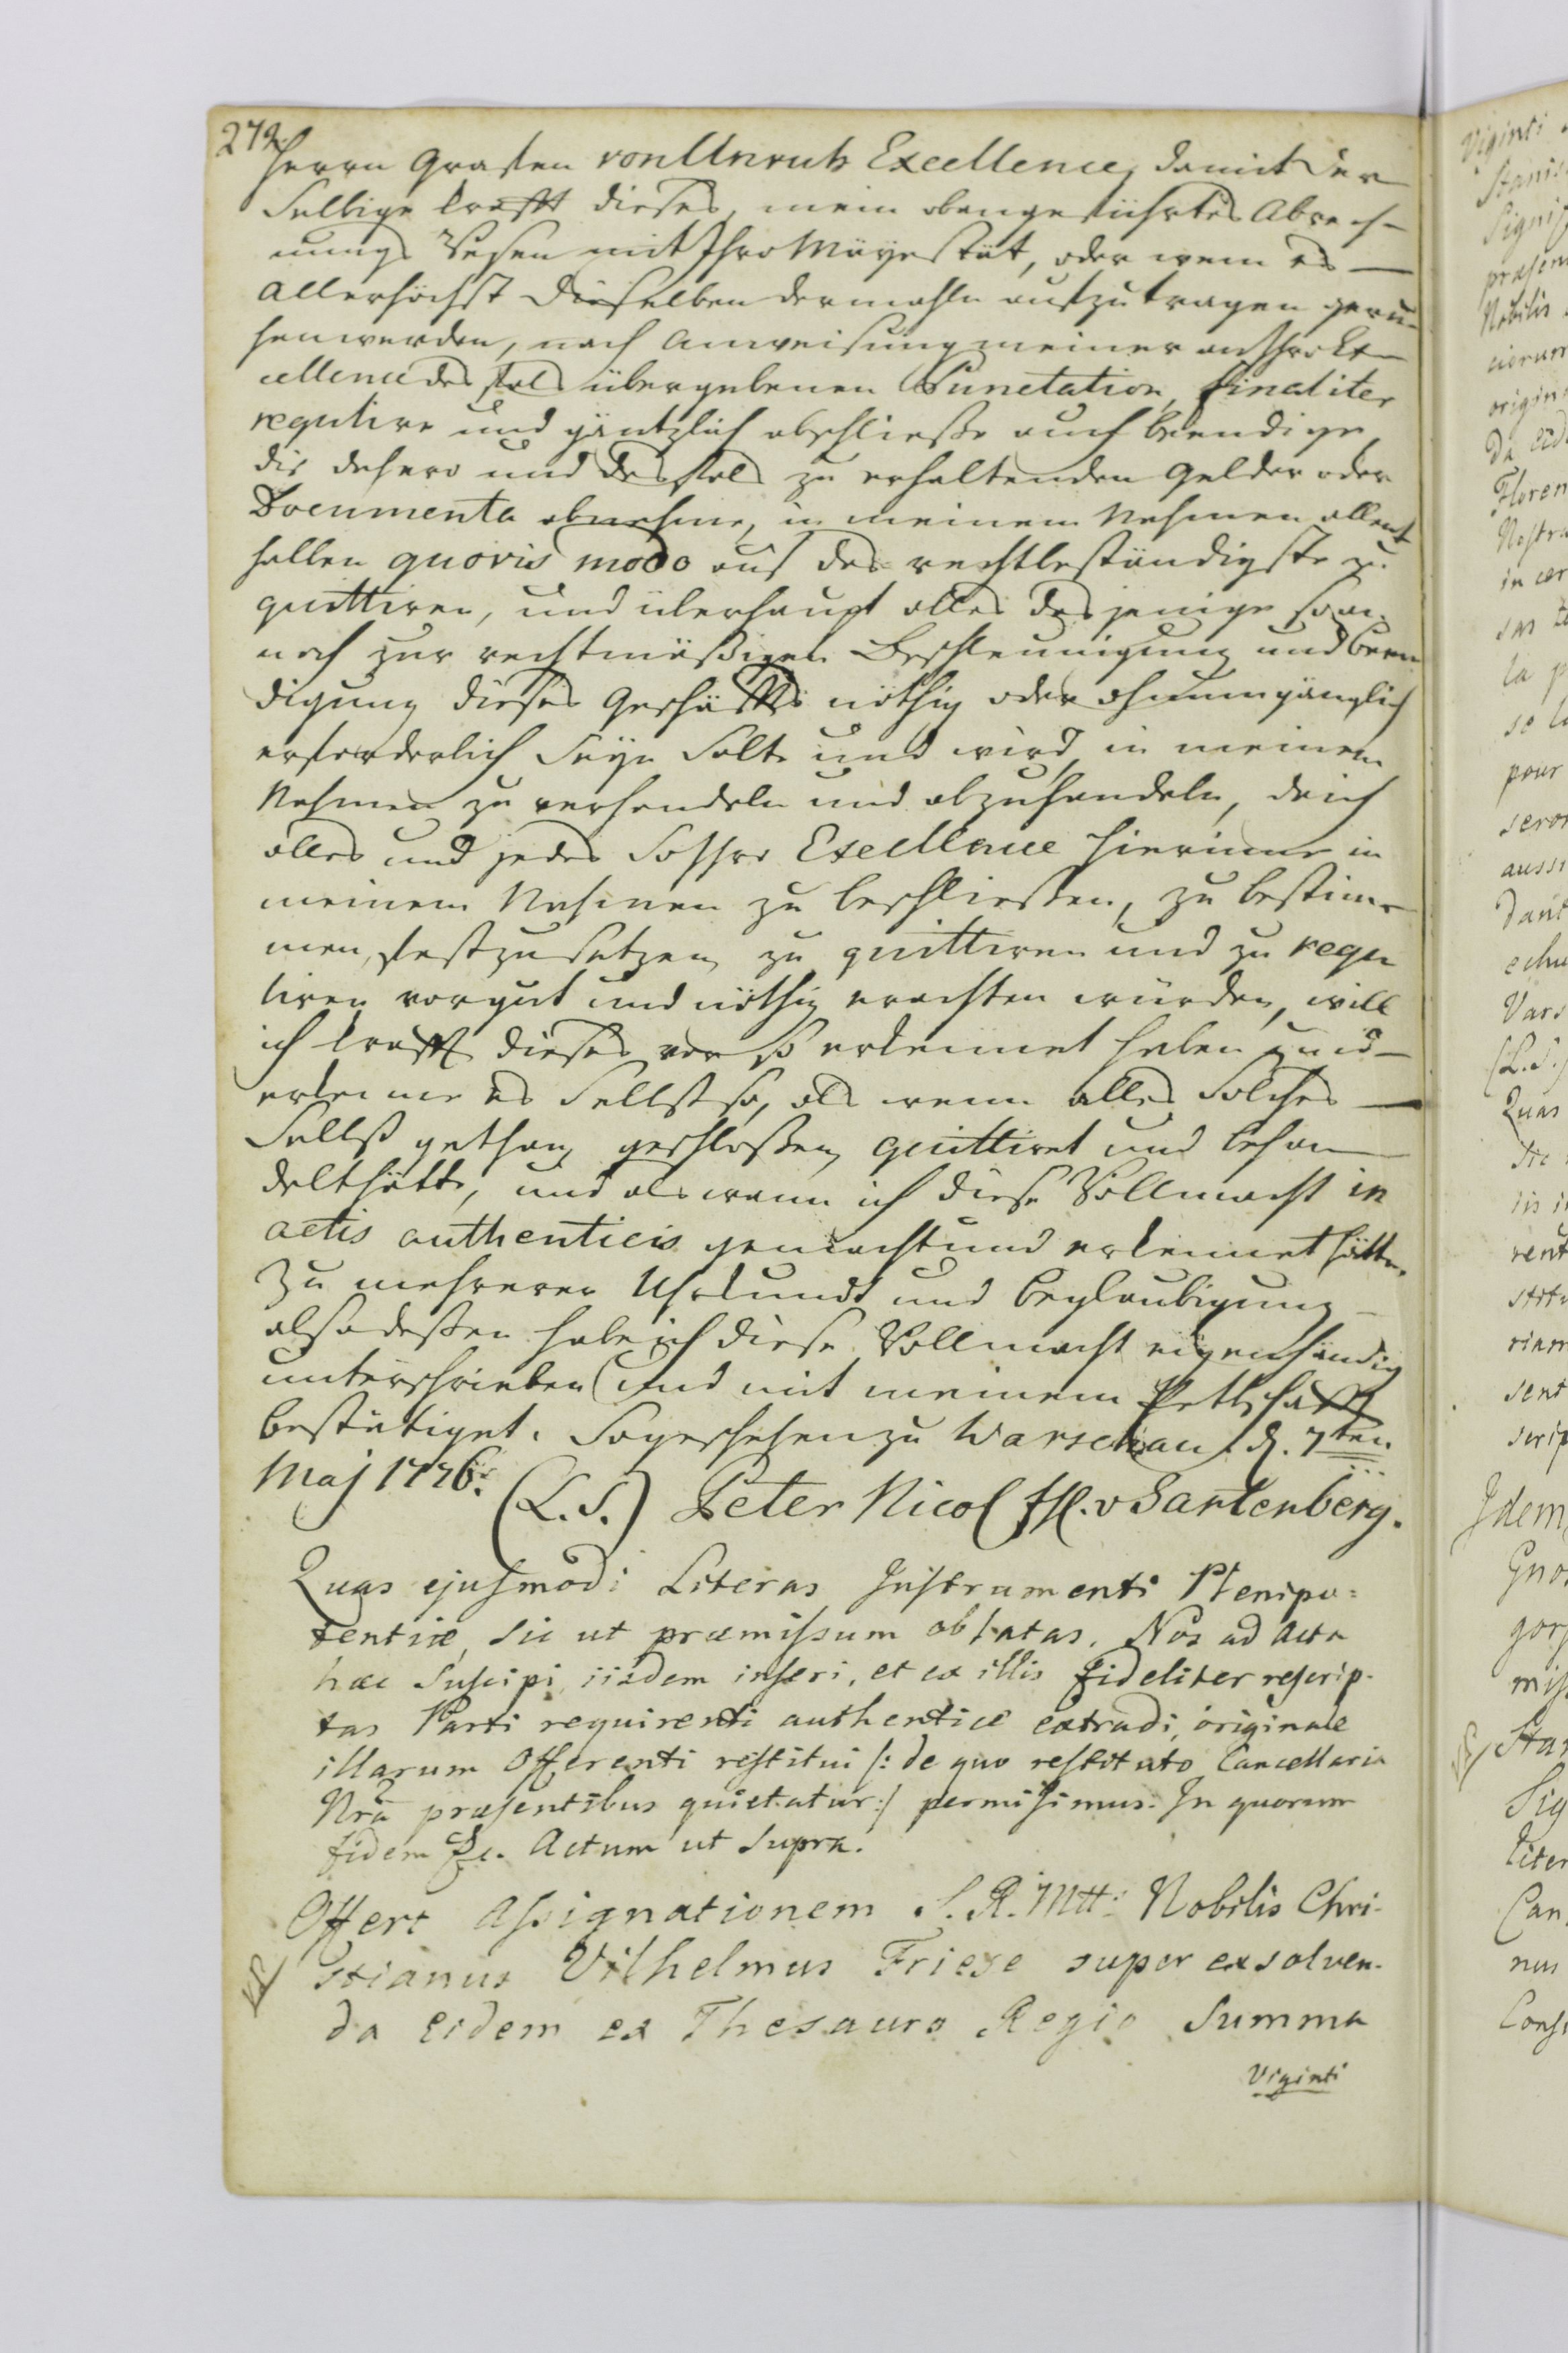 272.
Herrn Grafen von Unruh Excellence, damit der
Selbige krafft dieses, mein oben geführtes Abrech-
nungs Wesen mit Ihro Mayestät, oder wem es —
Allerhöchst dieselben dermahln aufzutragen geru-
hen werden, nach Anweisung meiner an Ihro Ex-
cellence desfals übergebenen Punctation, finaliter
regulire und gäntzlich abschließe auch beendige,
die dahero und desfals zu erhaltenden Gelder oder
Documenta abnehme, in meinem Nahmen allent
halben quovis modo auf das rechtbeständigste zu
quittiren, und überhaupt alles dasjenige so an
noch zur rechtmäßigen Beschleunigung und Been
digung dieses Geschäffts nöthig oder ohnumgänglich
erforderlich seyn solte und wird, in meinem
Nahmen zu verhandeln und abzuhandeln, da ich
alles und jedes so Ihro Excellence hierinne in
meinem Nahmen zu beschließen, zu bestim-
men, festzusetzen zu quittiren und zu regu
liren vor gut und nöthig erachten würden, will
ich krafft dieses vor so erkennet haben und —
erkenne es selbst so, als wenn alles solches —
selbst gethan, geschloßen, quittiret und behan
delt hätte, und als wenn ich diese Vollmacht in
actis authenticis gemacht und erkennet hätte.
Zu mehrerer Uhrkundt und Beglaubigung —
alsodeßen habe ich diese Vollmacht eigenhändig
unterschrieben und mit meinem Pettschafft
bestätiget. So geschehen zu Warschau d. 7ten
Maj 1776. (L.S.) Peter Nicol Fh. v Gartenberg.
Quas ejusmodi Literas Instrumenti Plenipo=
tentiæ, sic ut præmissum oblatas, Nos ad Acta
hæc suscipi, iisdem inseri, et ex illis fideliter rescrip-
tas Parti requirenti authentice extradi, originale
illarum Offerenti restitui /: de quo restituto Cancellaria
Nrã præsentibus quietatur :/ permisimus. In quorum
fidem &c. Actum ut supra.
Offert Assignationem S. R. Mtt: Nobilis Chri-
stianus Vilhelmus Friese super exsolven-
da eidem ex Thesauro Regio Summa
Viginti
Viginti
Nobilis
origin
Floren
Nostra
la p
pour
aussi
Vars
(L.S.)
Quas
sent
scrip
Idem
mis
Star
Sig
liter
Can